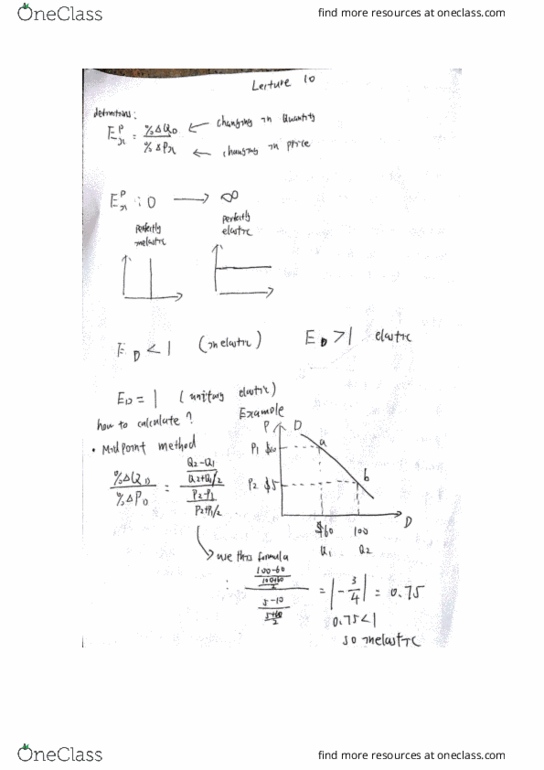 OneClass
find more resources at oneclass.com
Lecture 10
definitions:
E P x = %ΔQD / %ΔPx ← changing in Quantity
← changing in price
E P x : 0 → ∞
Perfectly inelastic
perfectly elastic
ED < 1 (inelastic) ED > 1 elastic
ED = 1 (unitary elastic)
how to calculate? Example
• Midpoint method
P D
P1 $10 a
P2 $5 b
D
$60 100
Q1 Q2
%ΔQD / %ΔPD = (Q2-Q1 / Q2+Q1/2) / (P2-P1 / P2+P1/2)
use this formula
: (100-60 / 100+60 / 2) / (5-10 / 5+10 / 2) = |-3/4| = 0.75
0.75<1
so inelastic
OneClass
find more resources at oneclass.com